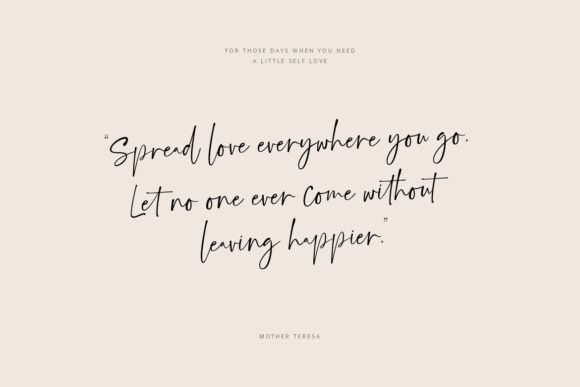 FOR THOSE DAYS WHEN YOU NEED
A LITTLE SELF LOVE
“Spread love everywhere you go.
Let no one ever come without
leaving happier.”
MOTHER TERESA